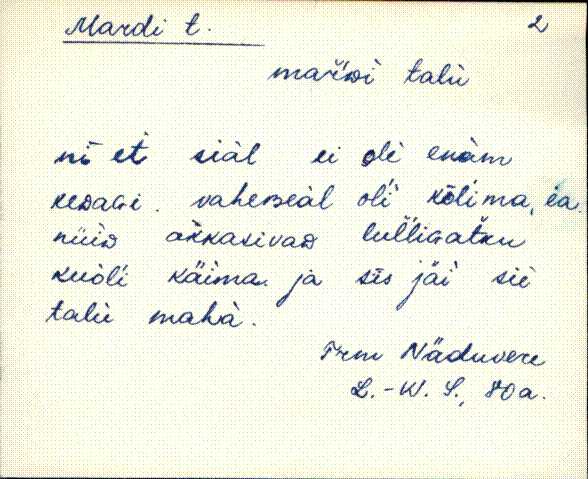 Mardi t. 2
mar̀ᴅi talù
nī et̀ siàl ei olè enàm
keᴅaɢi. vaheʙeàl oĺi kõĺima, ea
nüìᴅ akkasivaᴅ lul̀l̀iɢat̀ku
kuòĺi käima. ja sīs jäi siè
talù mahà.
Trm Näduvere
L.-W. S., 80 a.